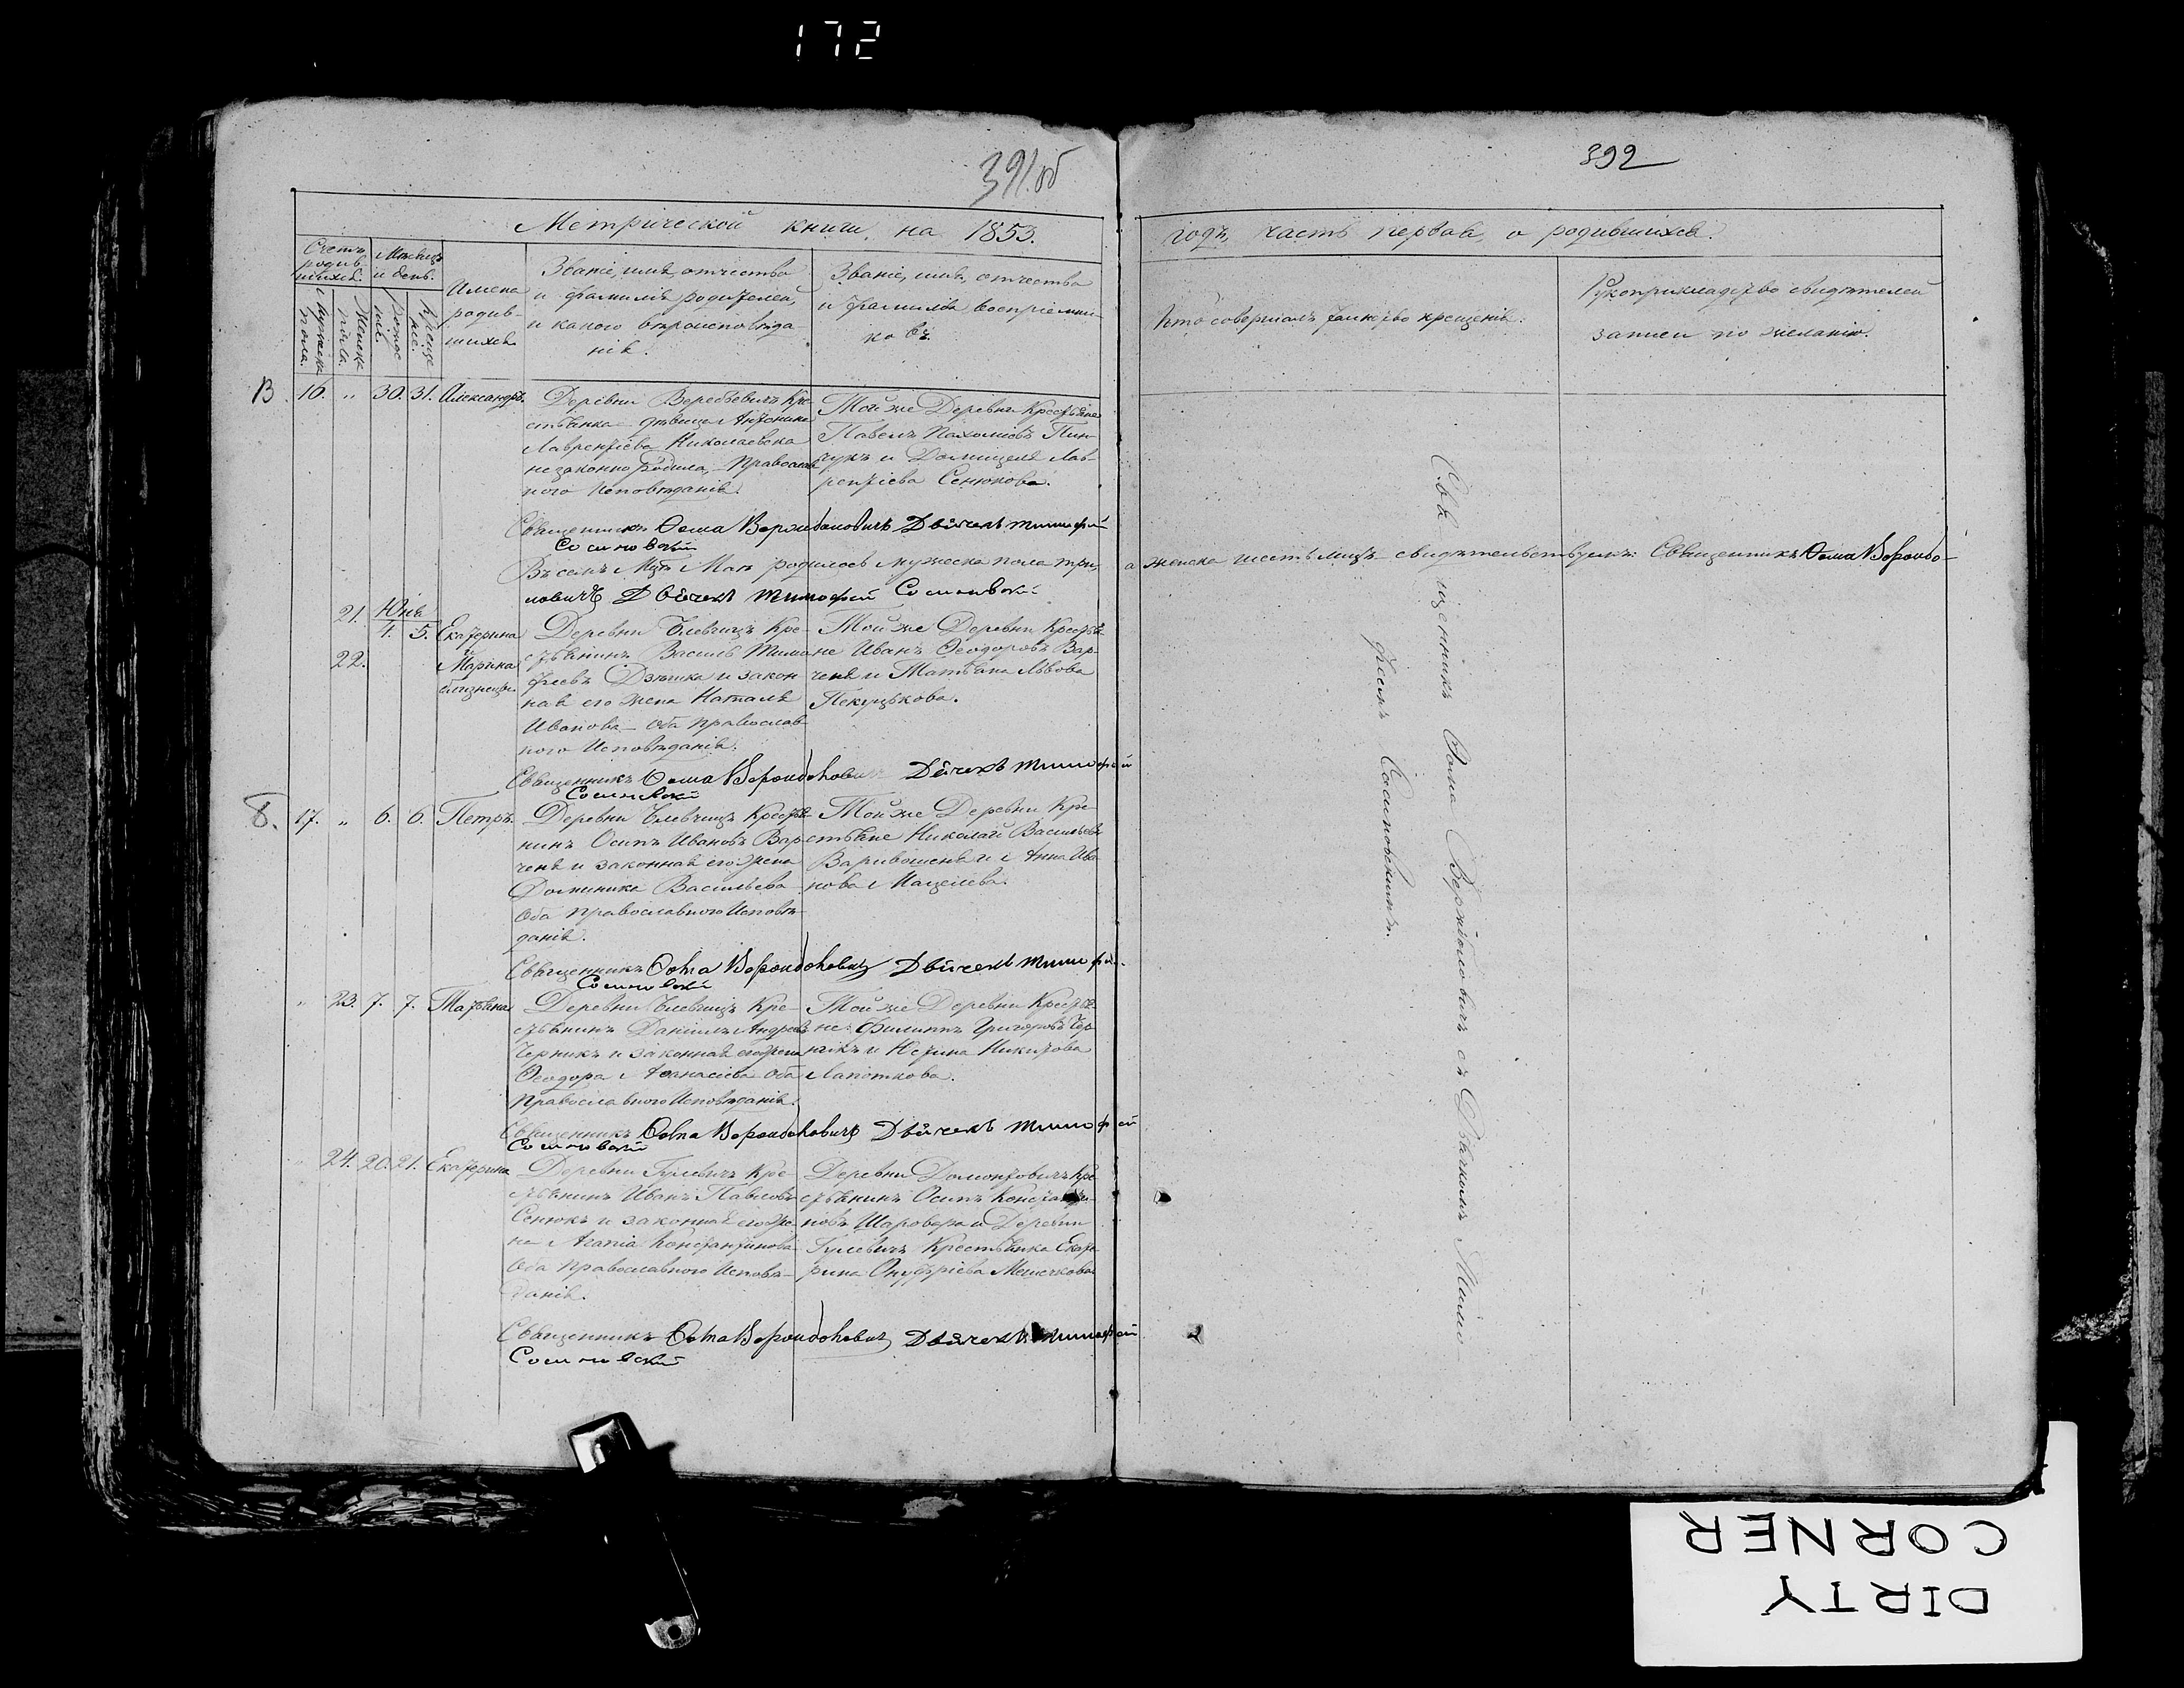 172
391.об
392
Метрической книги на 1853.
годъ, часть первая, о родившихся.
Счетъ родив-шихся.
Мужеск пола.
Женск пола.
Мѣсяцъ и день.
Рожде нiе.
Креще нiе.
Имена
родив-
шихся
Званiе, имя, отчество
и фамилiя родителей,
и какого вѣроисповѣда
нiя.
Званiе, имя, отчество
и фамилiя воспрiемни-
ковъ.
Кто совершалъ таинство крещенiя.
Рукоприкладство свидѣтелей
записи по желанiю.
В. 16. „ 30. 31. Александръ.
Деревни Веребьевичъ Кре-
стьянка дѣвица Антонина
Лаврентiева Николаевска
незаконно родила, Православ
ного Исповѣданiя.
Той же Деревни Крестьяне
Павелъ Пахомiевъ Пин-
чукъ и Домицеля Лав-
рентiева Сенюкова.
Священникъ Ѳома Вержбаловичъ Дьячекъ Тимофей
Сосиновскiй
Въ семъ Мцѣ Маѣ родилось мужеска пола три,
а женска шесть лицъ свидѣтельствуемъ: Священникъ Ѳома Вержба-
ловичъ Дьячекъ Тимофей Сосиновскiй
21. Юня 4. 5. Екатерина
22. и Марина
близнецы.
Деревни Блевчицъ Кре-
стьянинъ Василь Тимо
феевъ Дзешка и закон
ная его жена Наталя
Иванова Оба православ
ного Исповѣданiя.
Той же Деревни Крестья
не Иванъ Ѳеодоровъ Вар-
ченя и Татьяна Львова
Пекуцькова.
Священникъ Ѳома Вержбаловичъ Дьячекъ Тимофей
Сосиновскiй
8. 17. „ 6. 6. Петръ.
Деревни Блевчицъ Крестья
нинъ Осипъ Ивановъ Вар
ченя и законная его жена
Доминика Васильева
Оба православного Исповѣ-
данiя.
Той же Деревни Кре-
стьяне Николай Васильевъ
Варивошеня и Анна Ива
нова Мацелева.
Священникъ Ѳома Вержбаловичъ Дьячекъ Тимофей
Сосиновскiй
„ 23. 7. 7. Татьяна
Деревни Блевчицъ Кре-
стьянинъ Данiилъ Андреевъ
Черникъ и законная его жена
Ѳеодора Аѳанасiева Оба
Православного Исповѣданiя.
Той же Деревни Крестья
не Филиппъ Григоровъ Чер
никъ и Юстина Никитова
Лапоткова.
Священникъ Ѳома Вержбаловичъ Дьячекъ Тимофей
Сосиновскiй
„ 24. 20. 21. Екатерина
Деревни Гулевичъ Кре-
стьянинъ Иванъ Павловъ
Сенюкъ и законная его же
на Агапiа Константинова
Оба Православного Исповѣ-
данiя.
Деревни Домонтовичъ Кре
стьянинъ Осипъ Константи-
новъ Шаровара и Деревни
Гулевичъ Крестьянка Екате
рина Онуфрiева Мешечкова
Священникъ Ѳома Вержбаловичъ Дьячекъ Тимофей
Сосиновскiй
Священникъ Ѳома Вержбаловичъ съ Дьячкомъ Тимо-
феемъ Сосиновскимъ.
DIRTY
CORNER